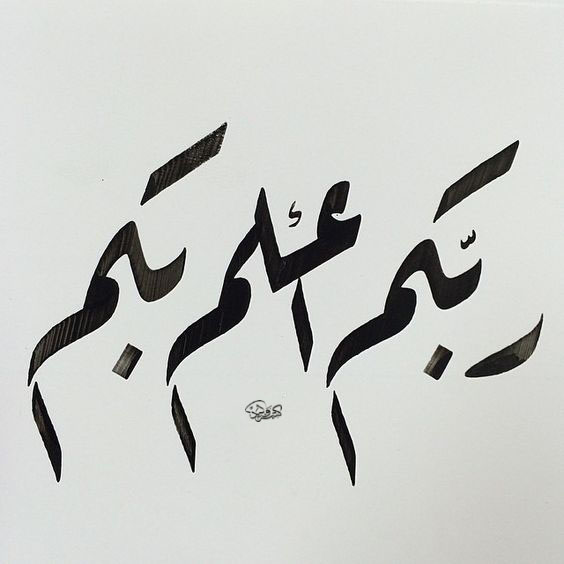 ربّكم أعلم بكم